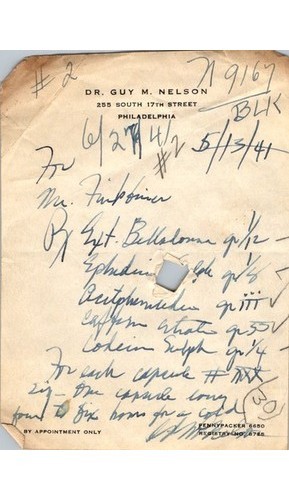 # 2
71 9167
DR. GUY M. NELSON
255 SOUTH 17TH STREET
PHILADELPHIA
BLK
6/27/41
#2
5/13/41
For
Mr.
Rx Ext. Belladonna gr 1/12
Ephedrin Sulph gr
Acetphenetidin gr iii
Citrate gr
Codein Sulph gr 1/4
For each capsule # XXX
Sig - One capsule every
four to six hours for a cold
30
BY APPOINTMENT ONLY
PENNYPACKER 6650
REGISTRY NO. 6765